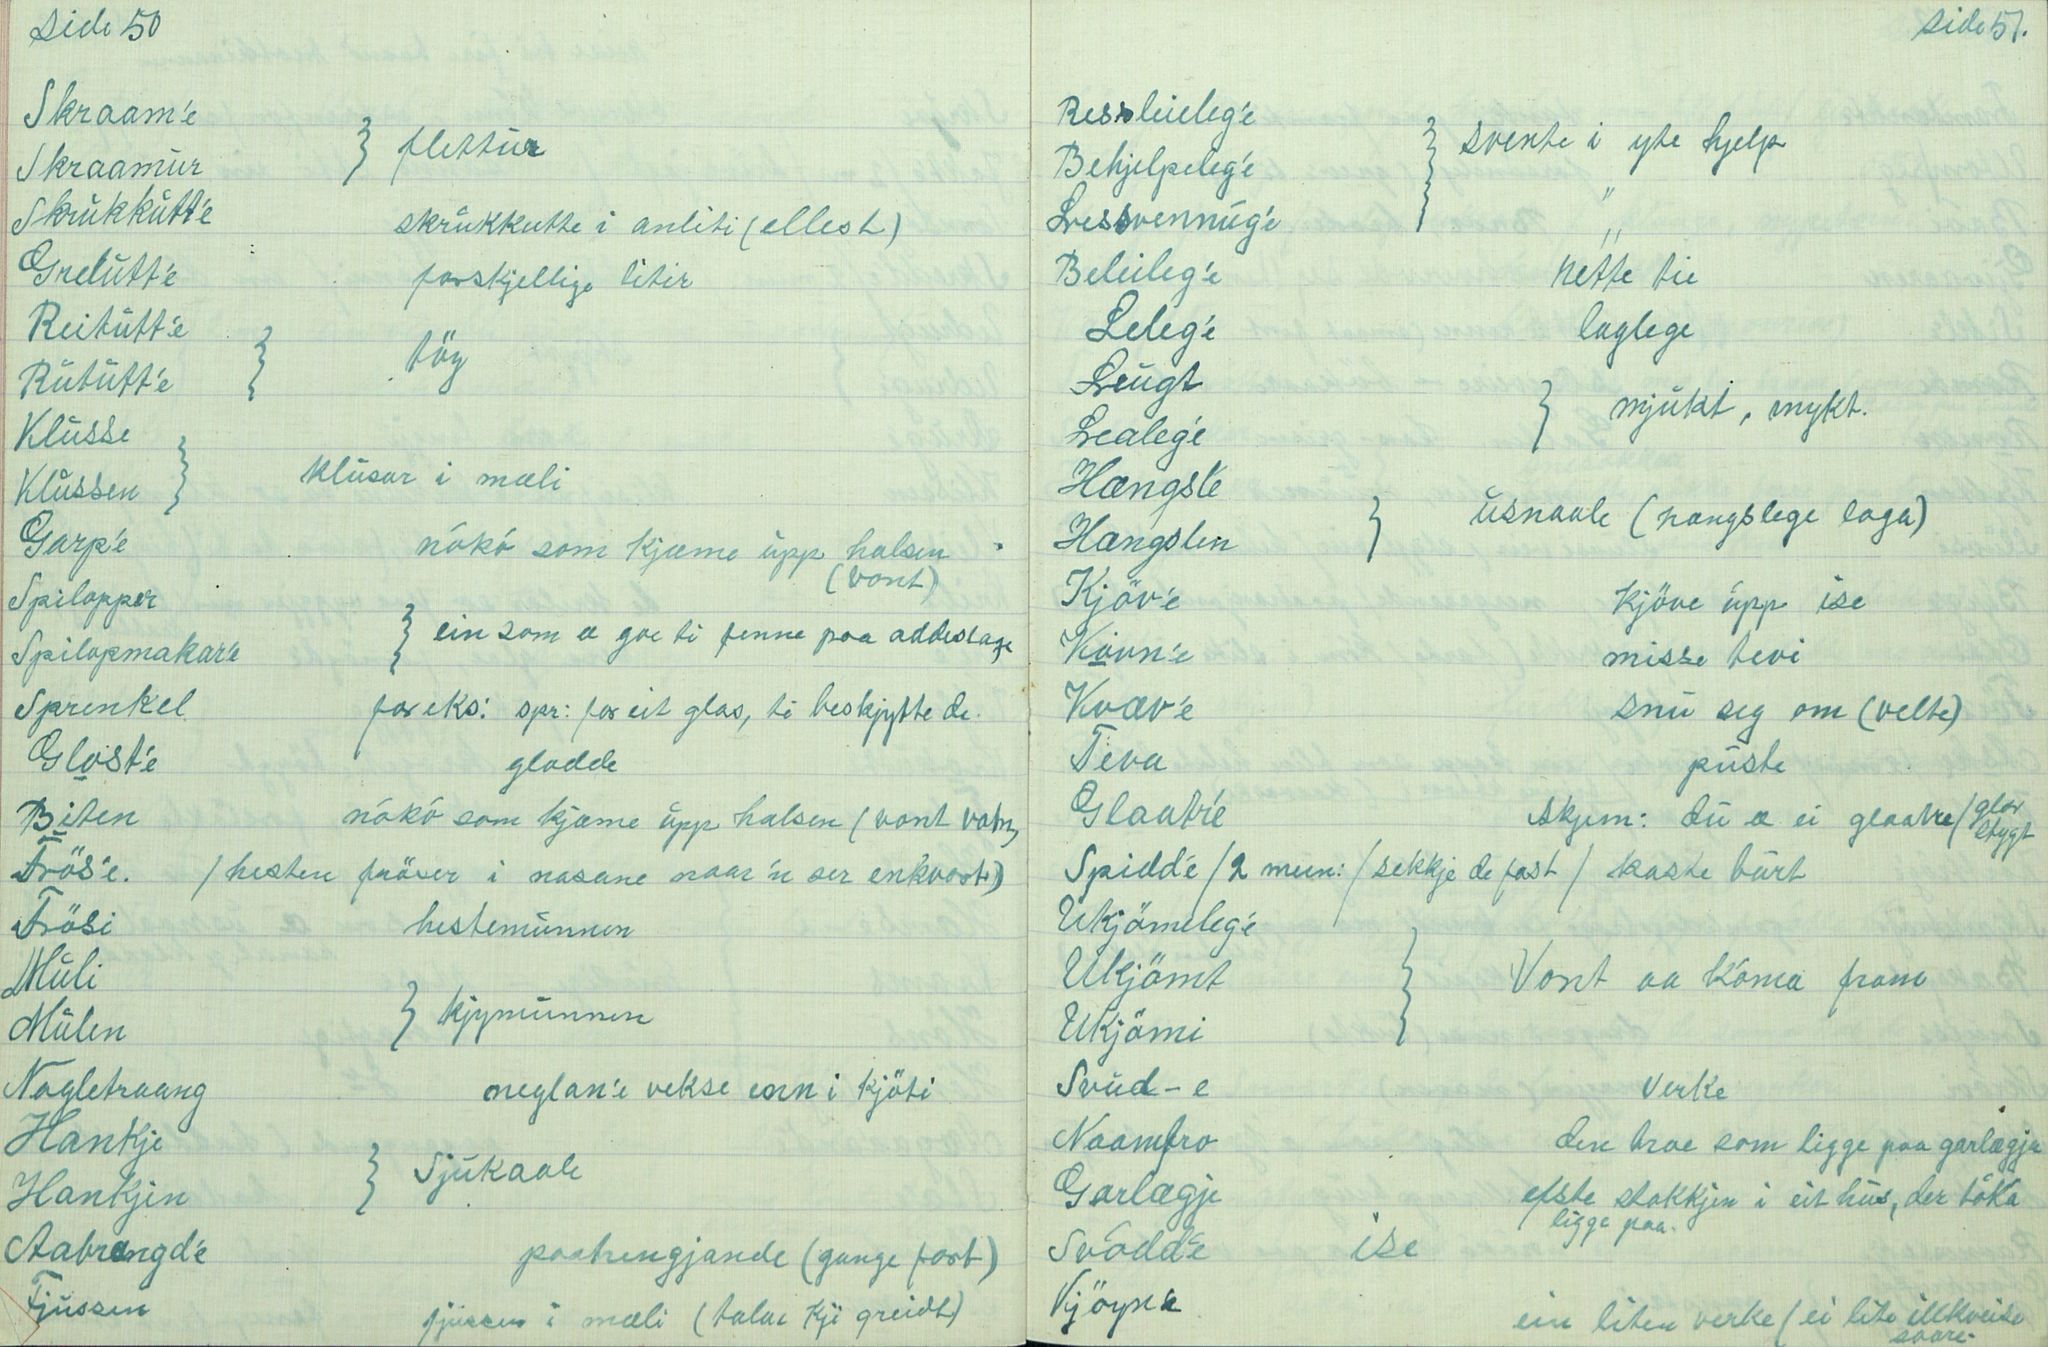 side 50
Skraam'e
Skraamur } flettur
Skrukkutt'e skrukkutte i anliti (ellest)
Grelutt'e forskjellige litir
Reitutt'e
Rututt'e } töy
Klusse
Klussen } klusar i mæli
Garp'e nókó som kjæme upp halsen (vont)
Spilopper
Spilopmakar'e } ein som æ goe ti fenne paa addeslage
Sprenkel for eks: spr: for eit glas, ti beskjytte de.
Glost'e glodde
Biten nókó som kjæme upp halsen (vont vatn,
Frös'e. / hesten fröser i nasane naar'n ser enkvart)
Frösi hestemunnen
Muli
Mulen } kjymunnen
Nagletraang neglan'e vekse enn i kjöti
Hankje
Hankjin } Sjukaale
Aatrengd'e paatrengjande (gange fort)
Fjussen fjussen i mæli (talar kji greidt)
side 51.
Ressleieleg'e
Behjelpeleg'e } svente i yte hjelp
Lessvennug'e "
Beleileg'e nette tie
Leleg'e laglege
Leugt
Lealeg'e } mjukt, mykt.
Hængsle
Hængslen } usnaale (hangslege laga)
Kjöv'e kjöve upp ise
Kovn'e misse tevi
Kvæv'e snu seg om (velte)
Teva puste
Glaatr'e skjem: du æ ei glaatre / glor stygt
Spidd'e / 2 mein: / sekkje de fast / kaste burt
Ukjömeleg'e
Ukjömt
Ukjömi } Vont aa kóma fram
Svid-e verke
Naambro den broe som ligge paa garlægja
Garlægje efste stokkjen i eit hus, der tóka ligge paa.
Svódd'e ise
Vjöyn'e ein liten verke (ei lite illkveise saare.